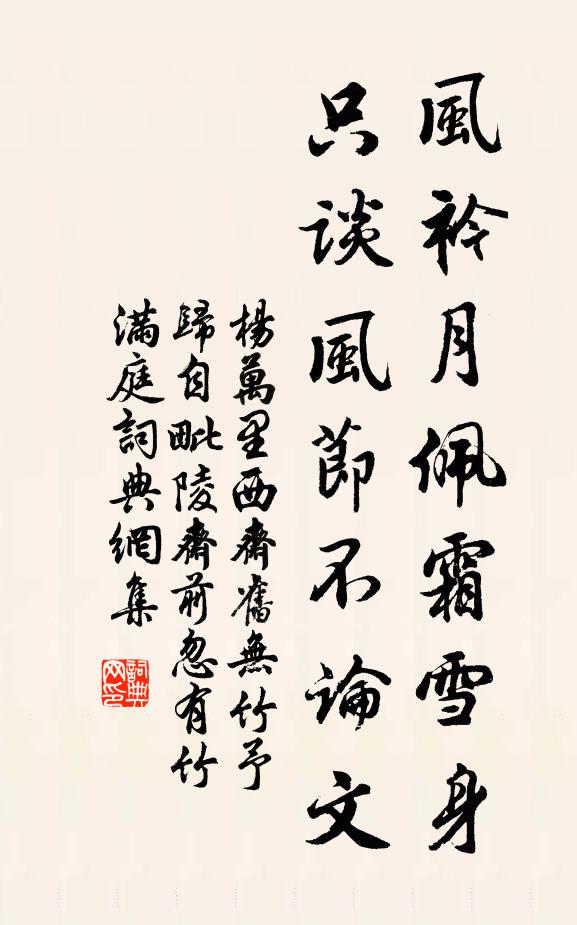 風衿月佩霜雪身
只談風節不論文
楊萬里西齋舊無竹予
歸自毗陵齋前忽有竹
滿庭詞典網集
詞典网印